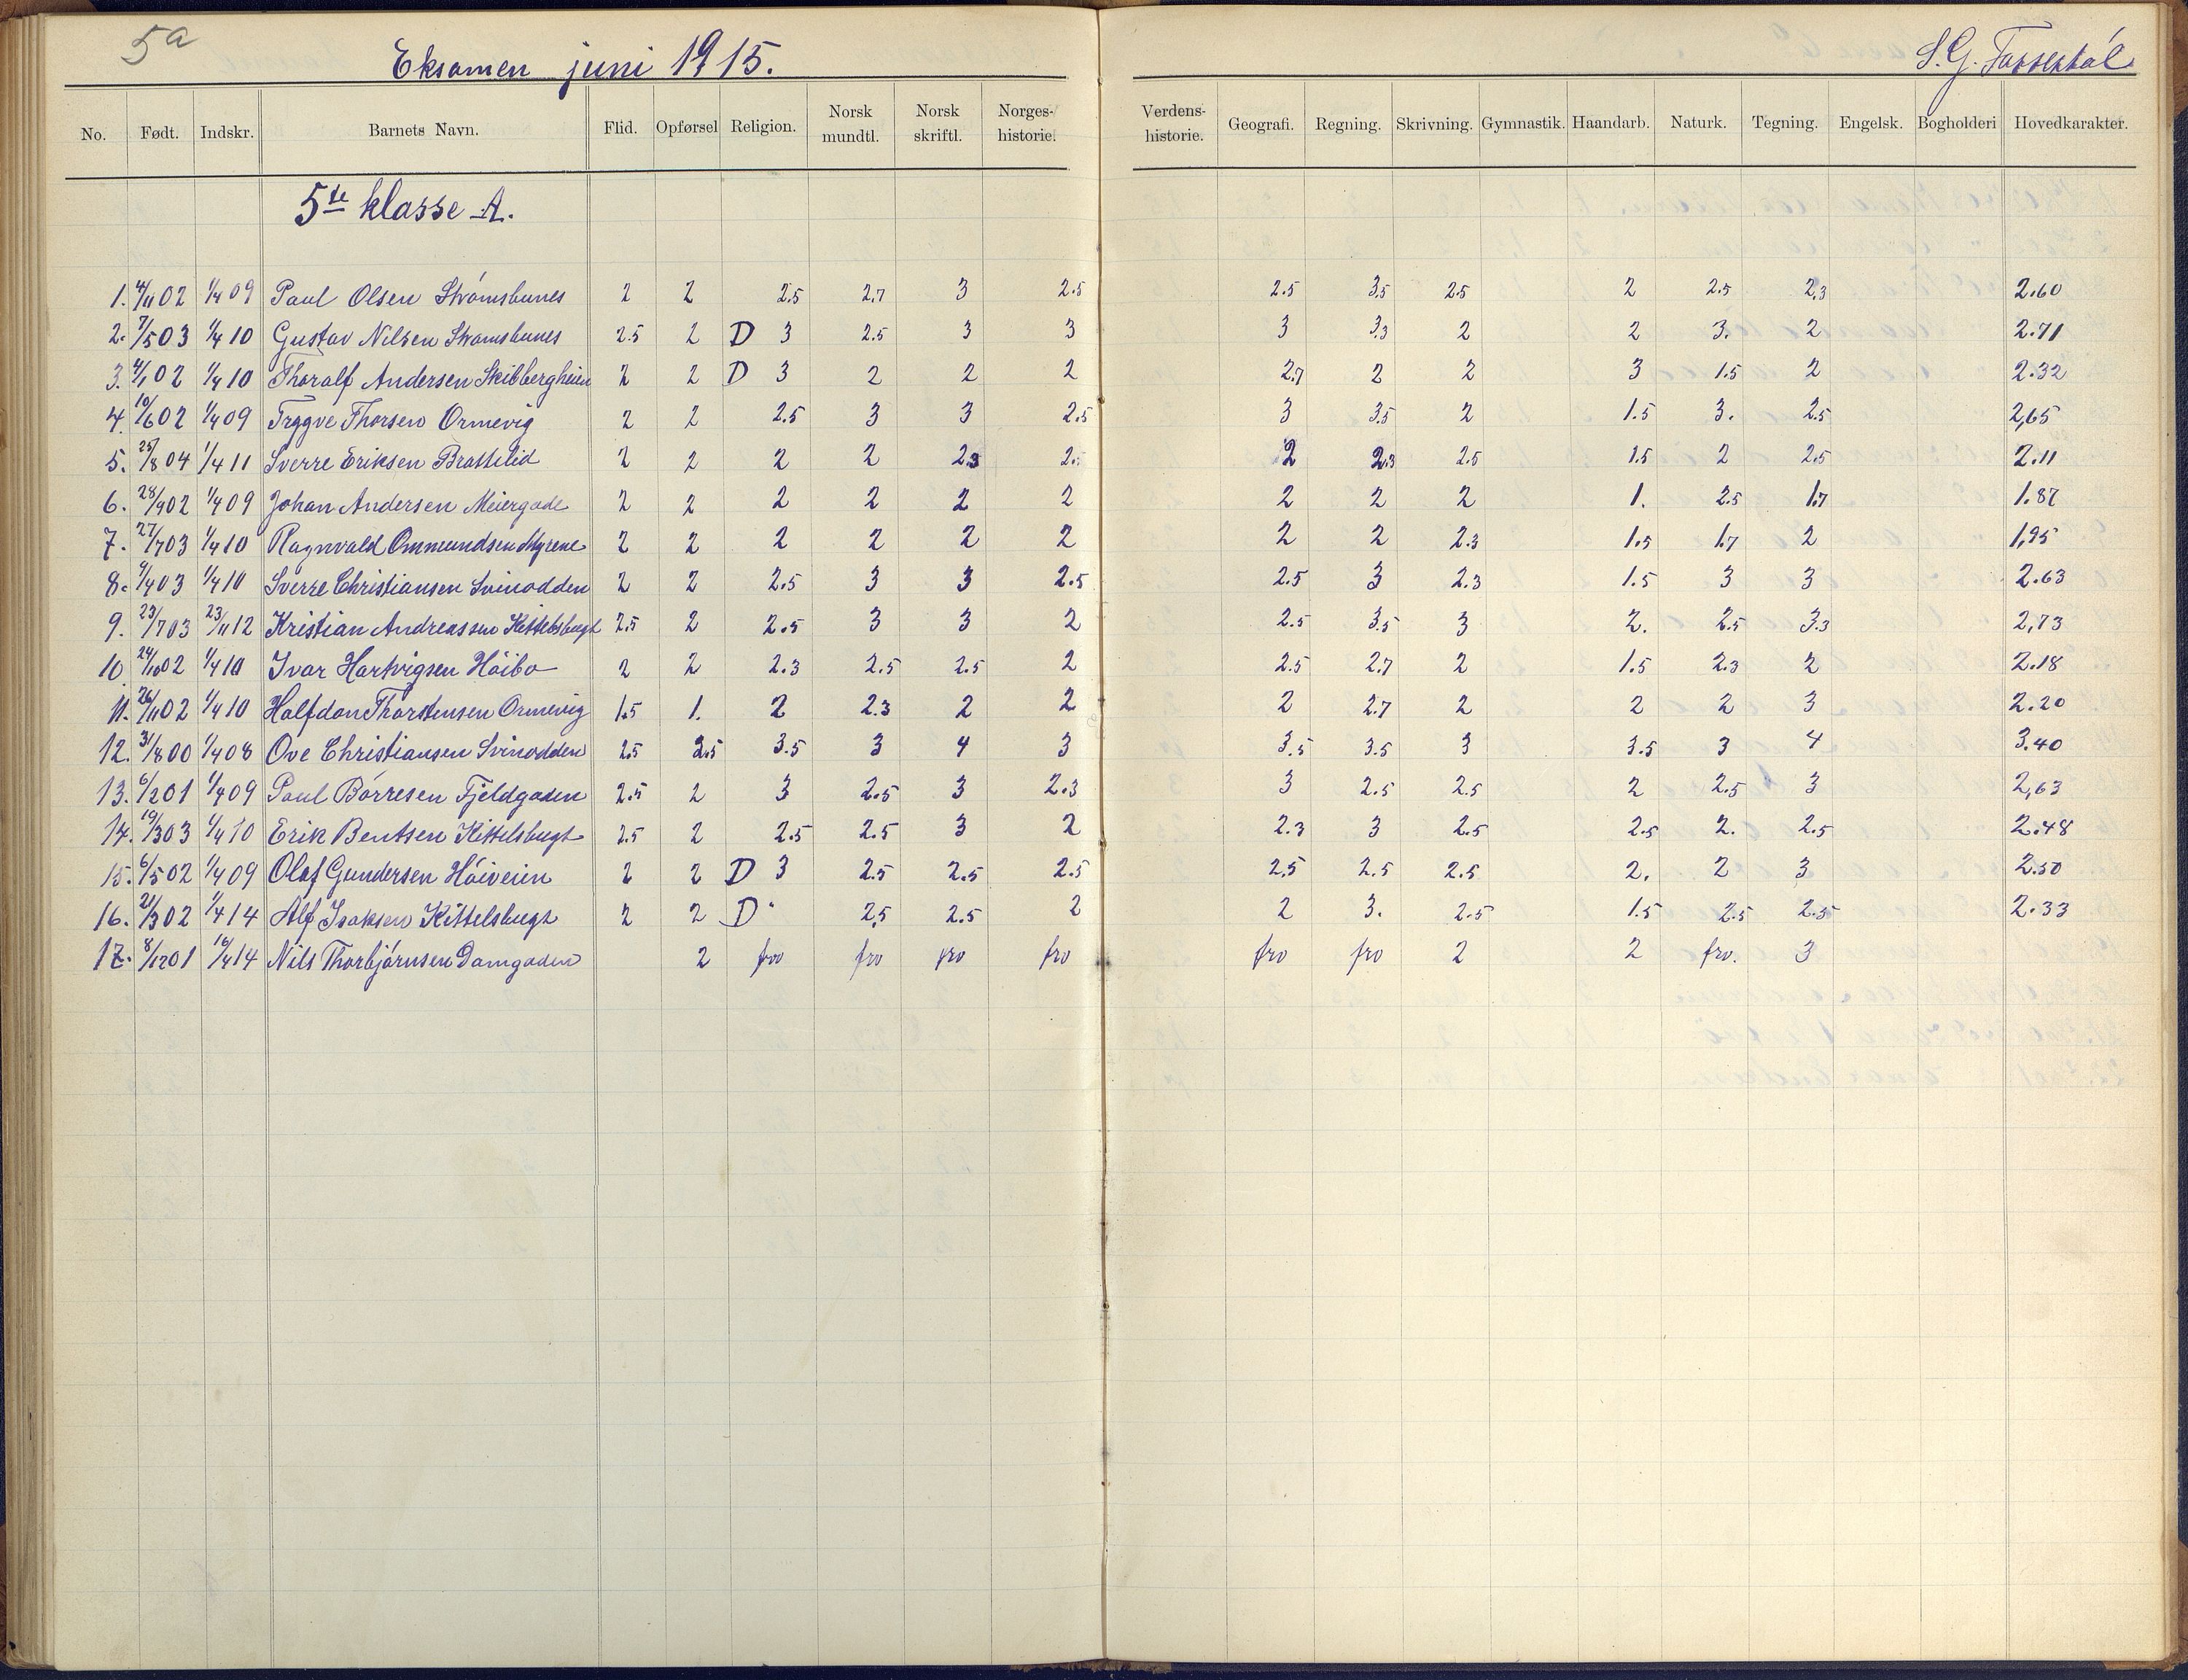 5a
Eksamen juni 1915.
No. Født. Indskr. Barnets Navn. Flid. Opførsel Religion. Norsk mundtl. Norsk skriftl. Norges-historie. Verdens-historie. Geografi. Regning. Skrivning. Gymnastik. Haandarb. Naturk. Tegning. Engelsk. Bogholderi Hovedkarakter.
5te klasse A.
1. 4/11 02 1/4 09 Paul Olsen Strømsbunes 2 2 2.5 2,7 3 2.5 2.5 3.5 2.5 2 2.5 2.3 2.60
2. 7/5 03 1/4 10 Gustav Nilsen Strømsbunes 2.5 2 D 3 2.5 3 3 3 3.3 2 2 3. 2 2.71
3. 4/1 02 1/4 10 Thoralf Andersen Skibbergheien 2 2 D 3 2 2 2 2.7 2 2 3 1.5 2 2.32
4. 10/6 02 1/4 09 Trygve Thorsen Ormevig 2 2 2.5 3 3 2.5 3 3.5 2 1.5 3. 2.5 2,65
5. 25/8 04 1/4 11 Sverre Eriksen Brattelid 2 2 2 2 2.3 2.5 2 2.3 2.5 1.5 2 2.5 2.11
6. 28/9 02 1/4 09 Johan Andersen Meiergade 2 2 2 2 2 2 2 2 2 1. 2.5 1.7 1.87
7. 27/7 03 1/4 10 Ragnvald Ommundsen Myrene 2 2 2 2 2 2 2 2 2.3 1.5 1.7 2 1,95
8. 9/4 03 1/4 10 Sverre Christiansen Svinodden 2 2 2.5 3 3 2.5 2.5 3 2.3 1.5 3 3 2.63
9. 23/7 03 23/11 12 Kristian Andreassen Kittelsbugt 2.5 2 2.5 3 3 2 2.5 3.5 3 2. 2.5 3.3 2,73
10. 24/10 02 1/4 10 Ivar Hartvigsen Høibo 2 2 2.3 2.5 2.5 2 2.5 2.7 2 1.5 2.3 2 2.18
11. 26/11 02 1/4 10 Halfdan Thorstensen Ormevig 1.5 1. 2 2.3 2 2 2 2.7 2 2 2 3 2.20
12. 31/8 00 1/4 08 Ove Christiansen Svinodden 2.5 2.5 3.5 3 4 3 3.5 3.5 3 3.5 3 4 3.40
13. 6/2 01 1/4 09 Paul Børresen Fjeldgaden 2.5 2 3 2.5 3 2.3 3 2.5 2.5 2 2.5 3 2,63
14. 19/3 03 1/4 10 Erik Bentsen Kittelsbugt 2.5 2 2.5 2.5 3 2 2.3 3 2.5 2.5 2. 2.5 2.48
15. 6/5 02 1/4 09 Olaf Gundersen Høiveien 2 2 D 3 2.5 2.5 2.5 2.5 2.5 2.5 2. 2 3 2.50
16. 21/3 02 1/4 14 Alf Isaksen Kittelsbugt 2 2 D 2.5 2.5 2 2 3. 2.5 1.5 2.5 2.5 2.33
17. 8/12 01 16/4 14 Nils Thorbjørnsen Damgaden 2 fro fro fro fro fro fro 2 2 fro. 3